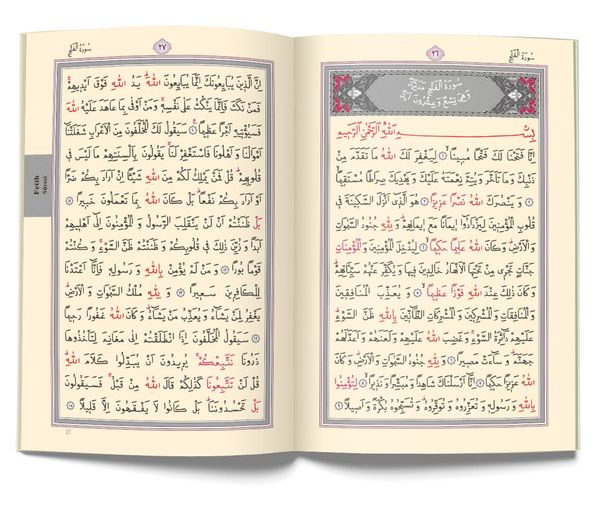 سُورَةُ الْفَتْحِ
٢٦
سُورَةُ الْفَتْحِ مَدَنِيَّةٌ
وَهِيَ تِسْعٌ وَعِشْرُونَ اٰيَةً
بِسْمِ اللّٰهِ الرَّحْمٰنِ الرَّحِيمِ
اِنَّا فَتَحْنَا لَكَ فَتْحًا مُبِينًا ١ لِيَغْفِرَ لَكَ اللّٰهُ مَا تَقَدَّمَ مِنْ
ذَنْبِكَ وَمَا تَاَخَّرَ وَيُتِمَّ نِعْمَتَهُ عَلَيْكَ وَيَهْدِيَكَ صِرَاطًا مُسْتَقِيمًا ٢
وَيَنْصُرَكَ اللّٰهُ نَصْرًا عَزِيزًا ٣ هُوَ الَّذِي اَنْزَلَ السَّكِينَةَ فِي
قُلُوبِ الْمُؤْمِنِينَ لِيَزْدَادُوا اِيمَانًا مَعَ اِيمَانِهِمْ وَلِلّٰهِ جُنُودُ السَّمٰوَاتِ
وَالْاَرْضِ وَكَانَ اللّٰهُ عَلِيمًا حَكِيمًا ٤ لِيُدْخِلَ الْمُؤْمِنِينَ وَالْمُؤْمِنَاتِ
جَنَّاتٍ تَجْرِي مِنْ تَحْتِهَا الْاَنْهَارُ خَالِدِينَ فِيهَا وَيُكَفِّرَ عَنْهُمْ سَيِّـَٔاتِهِمْ
وَكَانَ ذٰلِكَ عِنْدَ اللّٰهِ فَوْزًا عَظِيمًا ٥ وَيُعَذِّبَ الْمُنَافِقِينَ
وَالْمُنَافِقَاتِ وَالْمُشْرِكِينَ وَالْمُشْرِكَاتِ الظَّانِّينَ بِاللّٰهِ ظَنَّ السَّوْءِ
عَلَيْهِمْ دَائِرَةُ السَّوْءِ وَغَضِبَ اللّٰهُ عَلَيْهِمْ وَلَعَنَهُمْ وَاَعَدَّ لَهُمْ
جَهَنَّمَ وَسَاءَتْ مَصِيرًا ٦ وَلِلّٰهِ جُنُودُ السَّمٰوَاتِ وَالْاَرْضِ وَكَانَ
اللّٰهُ عَزِيزًا حَكِيمًا ٧ اِنَّا اَرْسَلْنَاكَ شَاهِدًا وَمُبَشِّرًا وَنَذِيرًا ٨ لِتُؤْمِنُوا
بِاللّٰهِ وَرَسُولِهِ وَتُعَزِّرُوهُ وَتُوَقِّرُوهُ وَتُسَبِّحُوهُ بُكْرَةً وَاَصِيلًا ٩
٢٧
سُورَةُ الْفَتْحِ
اِنَّ الَّذِينَ يُبَايِعُونَكَ اِنَّمَا يُبَايِعُونَ اللّٰهَ يَدُ اللّٰهِ فَوْقَ اَيْدِيهِمْ
فَمَنْ نَكَثَ فَاِنَّمَا يَنْكُثُ عَلٰى نَفْسِهِ وَمَنْ اَوْفٰى بِمَا عَاهَدَ عَلَيْهُ اللّٰهَ
فَسَيُؤْتِيهِ اَجْرًا عَظِيمًا ١٠ سَيَقُولُ لَكَ الْمُخَلَّفُونَ مِنَ الْاَعْرَابِ شَغَلَتْنَا
اَمْوَالُنَا وَاَهْلُونَا فَاسْتَغْفِرْ لَنَا يَقُولُونَ بِاَلْسِنَتِهِمْ مَا لَيْسَ فِي
قُلُوبِهِمْ قُلْ فَمَنْ يَمْلِكُ لَكُمْ مِنَ اللّٰهِ شَيْـًٔا اِنْ اَرَادَ بِكُمْ ضَرًّا
اَوْ اَرَادَ بِكُمْ نَفْعًا بَلْ كَانَ اللّٰهُ بِمَا تَعْمَلُونَ خَبِيرًا ١١
بَلْ ظَنَنْتُمْ اَنْ لَنْ يَنْقَلِبَ الرَّسُولُ وَالْمُؤْمِنُونَ اِلٰى اَهْلِيهِمْ
اَبَدًا وَزُيِّنَ ذٰلِكَ فِي قُلُوبِكُمْ وَظَنَنْتُمْ ظَنَّ السَّوْءِ وَكُنْتُمْ
قَوْمًا بُورًا ١٢ وَمَنْ لَمْ يُؤْمِنْ بِاللّٰهِ وَرَسُولِهِ فَاِنَّا اَعْتَدْنَا
لِلْكَافِرِينَ سَعِيرًا ١٣ وَلِلّٰهِ مُلْكُ السَّمٰوَاتِ وَالْاَرْضِ
يَغْفِرُ لِمَنْ يَشَاءُ وَيُعَذِّبُ مَنْ يَشَاءُ وَكَانَ اللّٰهُ غَفُورًا رَحِيمًا
١٤ سَيَقُولُ الْمُخَلَّفُونَ اِذَا انْطَلَقْتُمْ اِلٰى مَغَانِمَ لِتَاْخُذُوهَا
ذَرُونَا نَتَّبِعْكُمْ يُرِيدُونَ اَنْ يُبَدِّلُوا كَلَامَ اللّٰهِ
قُلْ لَنْ تَتَّبِعُونَا كَذٰلِكُمْ قَالَ اللّٰهُ مِنْ قَبْلُ فَسَيَقُولُونَ
بَلْ تَحْسُدُونَنَا بَلْ كَانُوا لَا يَفْقَهُونَ اِلَّا قَلِيلًا ١٥
Fetih
Sûresi
27